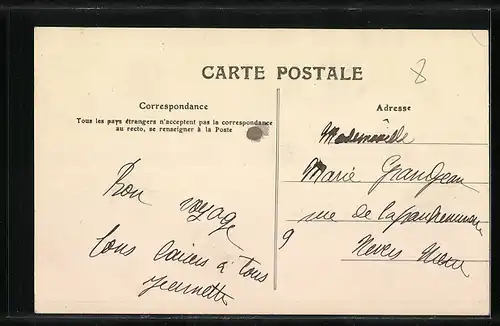 CARTE POSTALE
8
Correspondance
Tous les pays étrangers n'acceptent pas la correspondance
au recto, se renseigner à la Poste
Bon voyage
bons baisers à tous
Jeannette
Adresse
Mademoiselle
Marie Grandjean
9 rue de la
Nevers